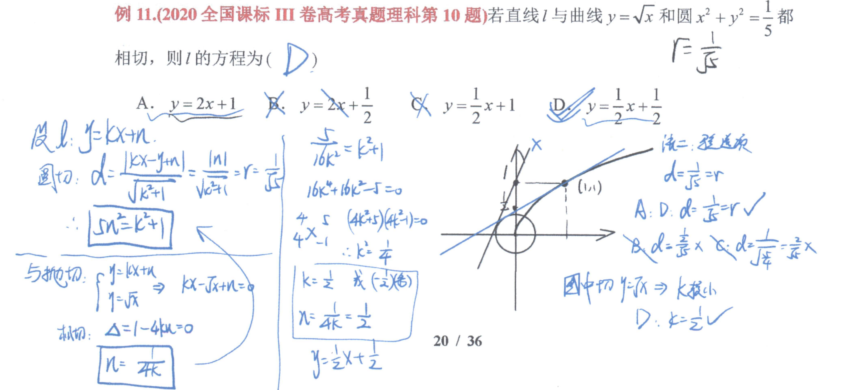 例 11.(2020 全国课标 III 卷高考真题理科第 10 题)若直线 l 与曲线 y=√x 和圆 x²+y²=1/5 都
相切，则 l 的方程为( D )
r=1/√5
A. y=2x+1 B. y=2x+1/2 C. y=1/2x+1 D. y=1/2x+1/2
设 l: y=kx+n.
圆切: d=|kx-y+n|/√(k²+1)=|n|/√(k²+1)=r=1/√5
∴ 5n²=k²+1
与抛切: { y=kx+n y=√x ⇒ kx-√x+n=0
相切: Δ=1-4kn=0
n=1/4k
5/16k²=k²+1
16k⁴+16k²-5=0
4 5 (4k²+5)(4k²-1)=0
4 -1 ∴k²=1/4
k=1/2 或(-1/2)(舍)
n=1/4k=1/2
y=1/2x+1/2
x
1
1/2
(1,1)
法二: 验选项
d=1/√5=r
A: D. d=1/√5=r✓
图中切 y=√x ⇒ k较小
D: k=1/2✓
20 / 36